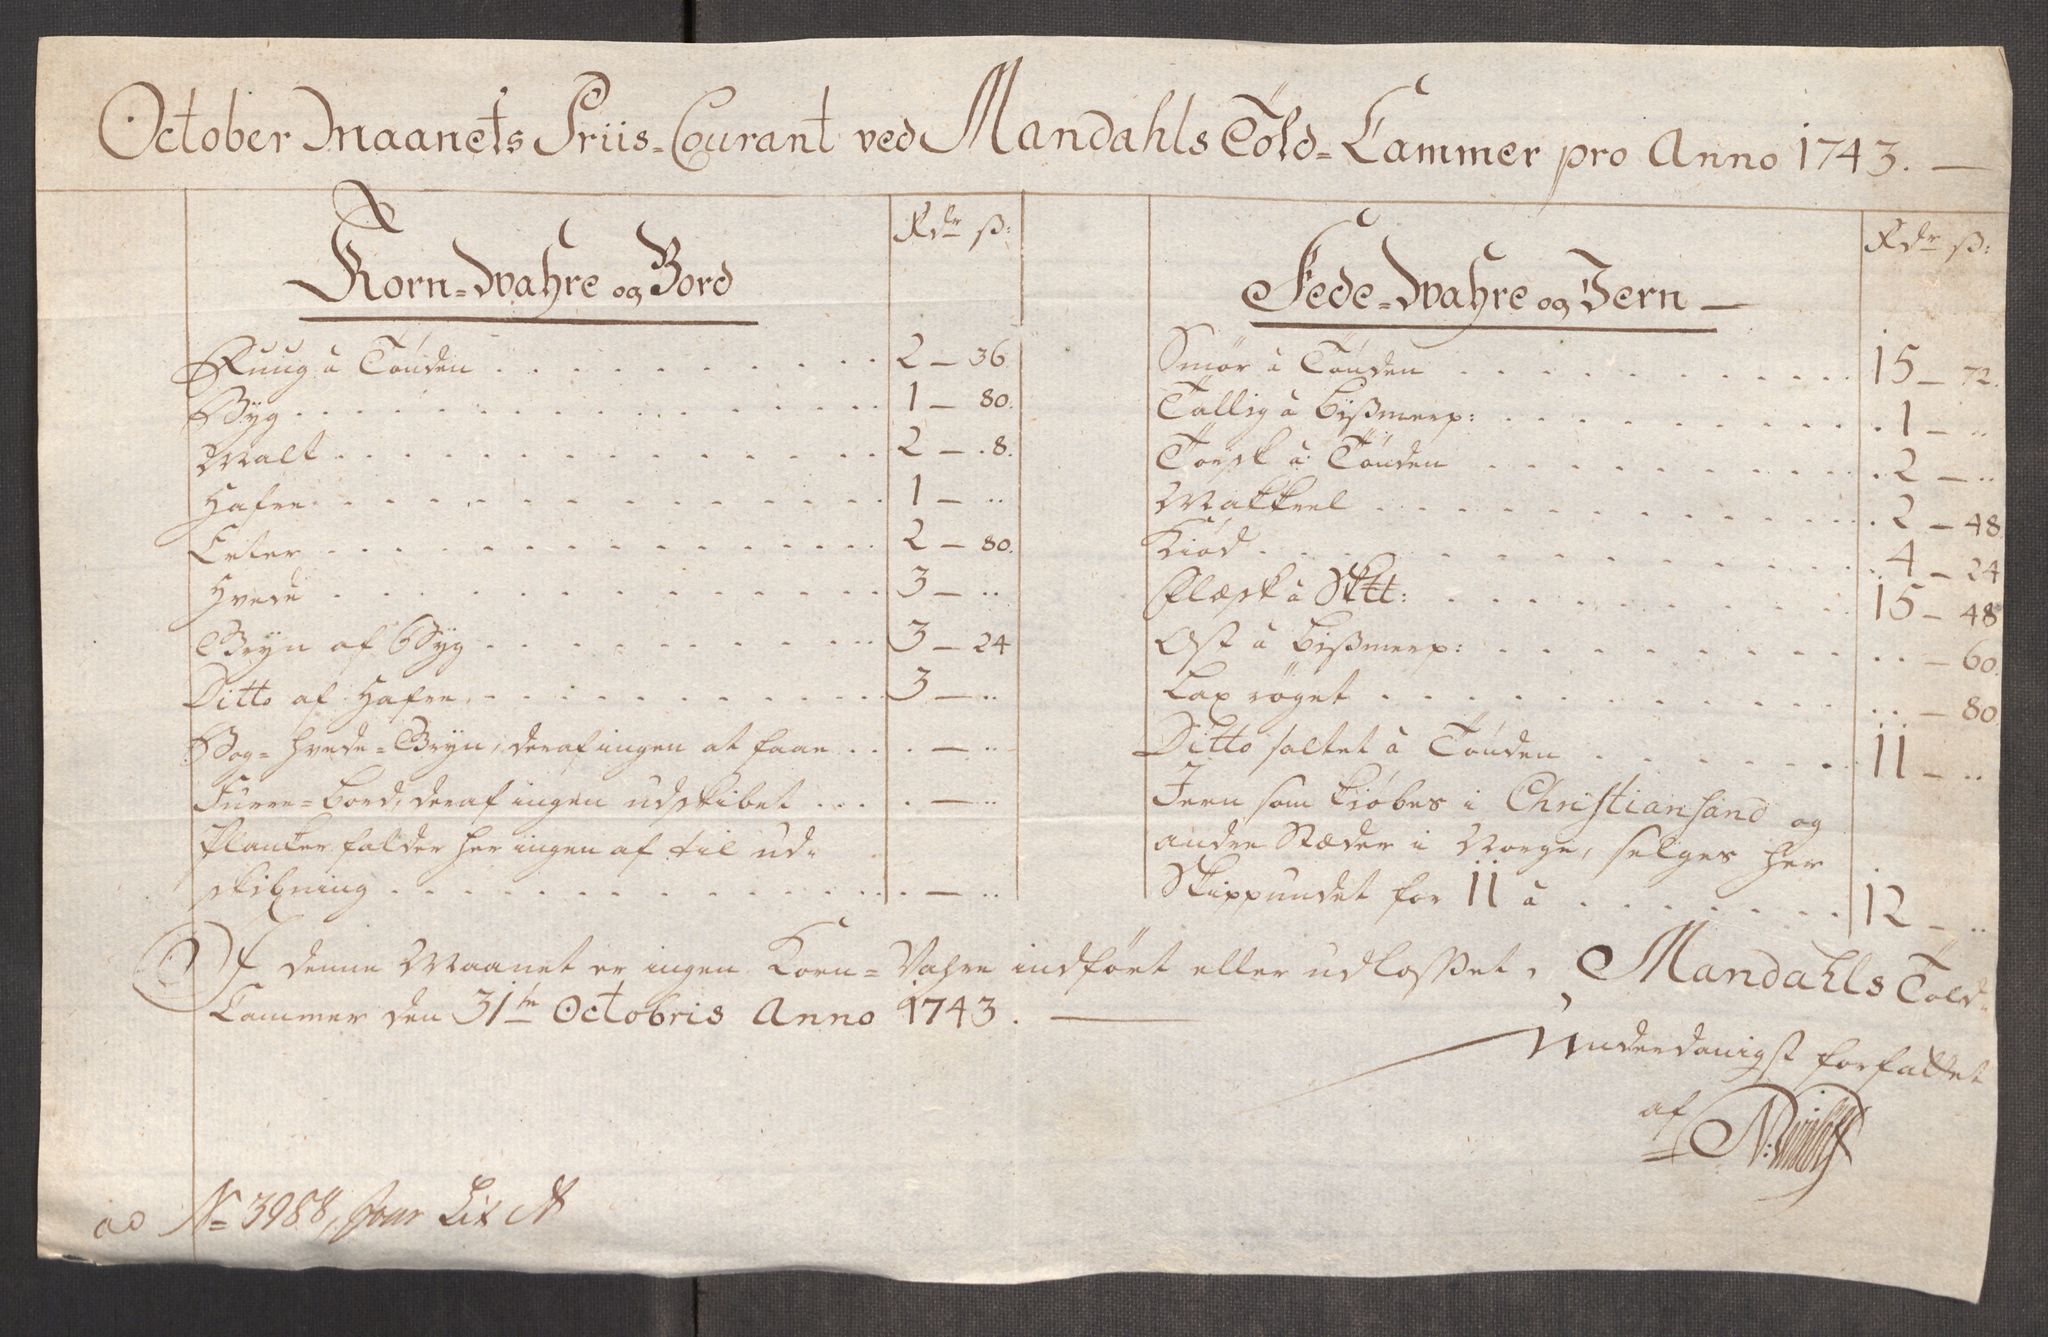 October Maanets Priis-Courant ved Mandahls Told-Cammer pro Anno 1743.
Rdr ß:
Korn-Wahre og Bord
Ruug â Tønden 2 - 36.
Byg 1 - 80.
Malt 2 - 8.
Hafre 1 - ..
Erter 2 - 80.
Hvede 3 - ..
Gryn af Byg 3 - 24
Ditto af Hafre 3 - ..
Bog-hvede-Gryn, deraf ingen at faae . - ..
Furre-bord, deraf ingen udskibet . - ..
Planker falder her ingen af til ud-
skibning . - ..
Rdr ß:
Fede-Wahre og Jern
Smør â Tønden 15 - 72.
Tallig â bißmerp: 1 - ..
Torsk â Tønden 2 - ..
Makkrel 2 - 48
Kiød 4 - 24
Flæsk â Sktt: 15 - 48
Ost â bißmerp: .. - 60.
Lax røget .. - 80
Ditto saltet â Tønden 11 - ..
Jern som kiøbes i Christiansand og
andre Stæder i Norge, selges her
Skippundet for 11 â 12 - ..
I denne Maanet er ingen Korn-Vahre indført eller udlosset, Mandahls Told-
Cammer den 31te Octobris Anno 1743.
Underdanigst forfattet
af
ad No 3988, Jour Lit A